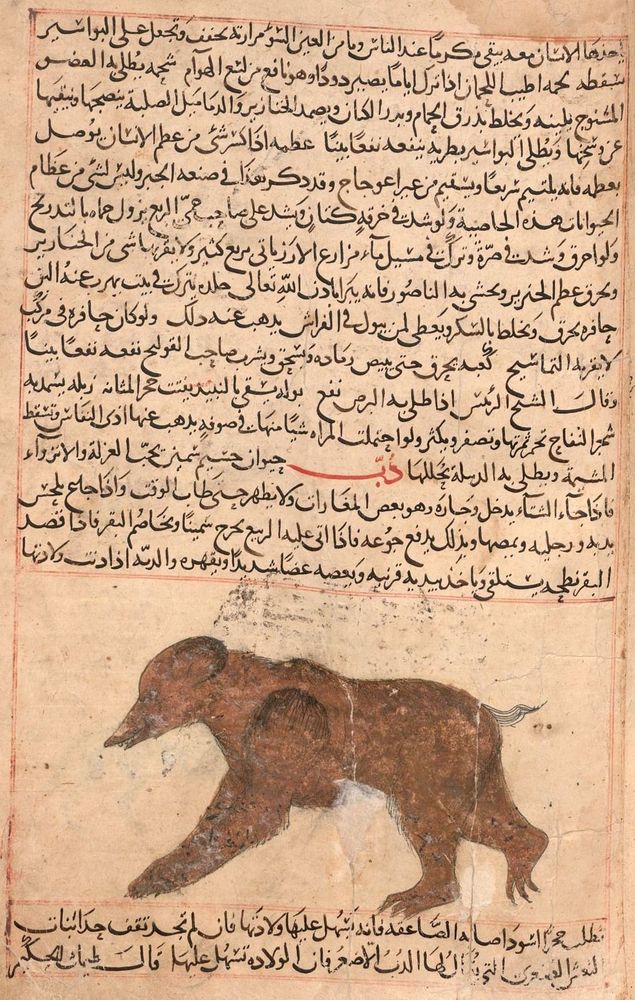 ياخذها الانسان معه يبقى مكرما عند الناس وما من العين السوء مرارته تجفف وتجعل على البواسير
تسقطه لحمه اطيب اللحمان اذا ترك اياما يصير دودا وهو نافع من لسع الهوام شحمه يطلى به العضو
المتشنج يلينه ويخلط بذرق الحمام وبزر الكتان ويضمد الخنازير والدماميل الصلبة ينضجها وينقيها
عن وسخها ويطلى البواسير بطريه ينفعه نفعا بينا عظمه اذا كسر شئ من عظم الانسان يوصل
بعظمه فانه يلتيم سريعا ويستقيم من غير اعوجاج وقد ذكر في صنعه الجبر وليس لشئ من عظام
الحيوانات هذه الخاصية ولو شدت في خرقة كتان ويشد على صاحب حمى الربع يزول حماه بالتدريج
ولو احرق وشدت في صرة وترك في مسيل ماء مزارع الارز ياتي بريع كثير ولا يقربها شئ من الخنازير
ويحرق عظم الخنزير ويحشى به الناصور فانه يبرا باذن الله تعالى جلده يترك في بيت يهرب عنه البق
حافره يحرق ويخلط بالسكر ويعطى لمن يبول في الفراش يذهب عنه ذلك ولو كان حافره في مركب
لا يقربه التماسيح كعبه يحرق حتى يبيض رماده ويسحق ويشرب صاحب القولنج نفعه نفعا بينا
وقال الشيخ الرئيس اذا طلي به البرص نفع بوله يسقى بالنبيذ يفتت حجر المثانة زبله يشمد به
شجر التفاح تحمر ثمرتها وتصفر ويكثر ولو احتملت المراة شيا منها في صوفة يذهب عنها اذى النفاس وتسقط
المشيمة ويطلى به الدبيلة يحللها دب حيوان جسيم سمين يحب العزلة والانزواء
فاذا جاء الشتاء يدخل وجاره وهو بعض المغارات ولا يظهر حتى طاب الوقت واذا جاع يلحس
يديه ورجليه ويمصها وبذلك يدفع جوعه فاذا اتى عليه الربيع يخرج سمينا ويخاصم البقر فاذا قصد
البقر نطحه يستلقي وياخذ بيديه قرنيه ويعضه عضا شديدا ويقهره والدبة اذا دنت ولادتها
تطلب حجرا اسود اصابه الصاعقة فانه يسهل عليها ولادتها فان لم تجد تقف حذا بنات
النعش الصغرى التي يقال لها الدب الاصغر فان الولادة تسهل عليها قال